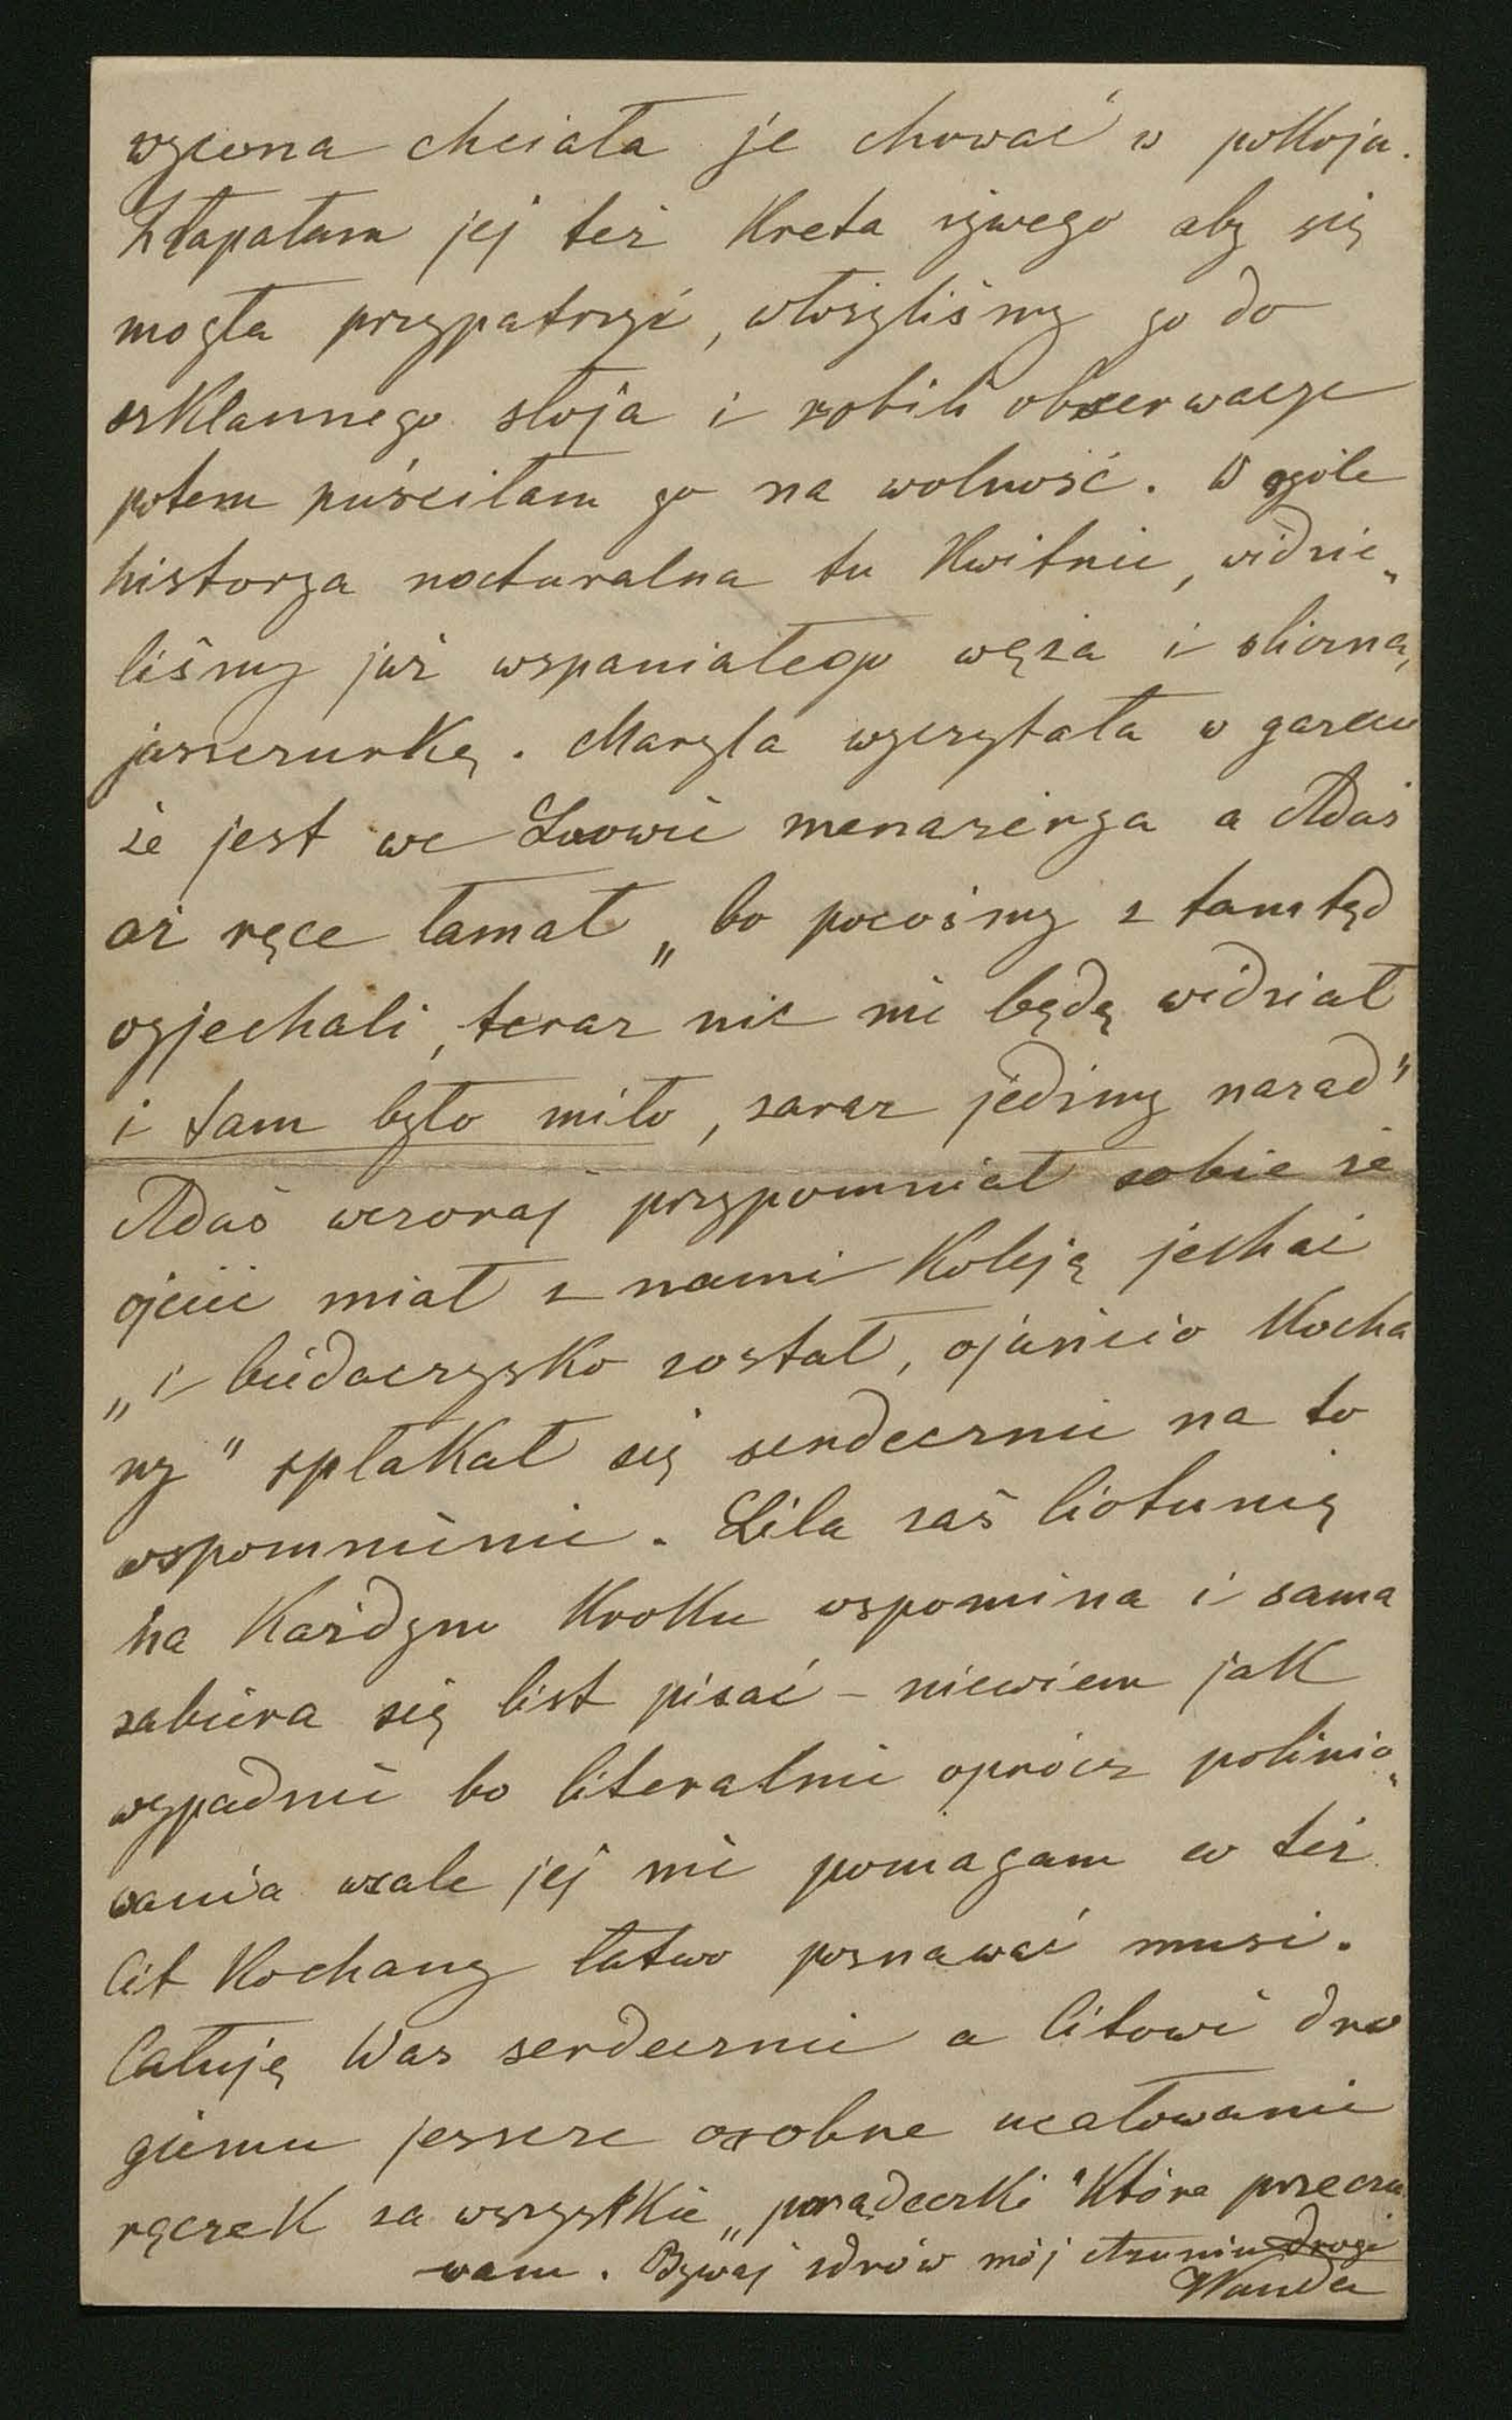 chciała je chować w pokoju.
Złapałam jej też Kreta żywego aby się
mogła przypatrzyć, włożyliśmy go do
szklannego słoja i robili obserwacye
potem puściłam go na wolność. W ogóle
historya naturalna tu Kwitnie, widzie„
liśmy już wspaniałego węża i śliczną
jaszczurkę. Maryla wyczytała w gazecie
że jest we Lwowie menażerya a Adaś
aż ręce łamał „bo pocośmy z tamtąd
wyjechali, teraz nic nie będę widział
i tam było miło, zaraz jedźmy nazad"
Adaś wczoraj przypomniał sobie że
ojciec miał z nami Koleją jechać
„i biedaczysko został, ojuńcio Kocha
ny" spłakał się serdecznie na to
wspomnienie. Lila zaś Ciotunię
na Każdym Kroku wspomina i sama
zabiera się list pisać – niewiem jak
wypadnie bo literalnie oprócz polinio„
wania wcale jej nie pomagam co też
Cit Kochany łatwo poznawać musi.
Całuję Was serdecznie a Citowi dro
giemu jeszcze osobne ucałowanie
rączek za wszystkie „porządeczki" Które przeczu
wam. Bywaj zdrów mój drogi
Wanda